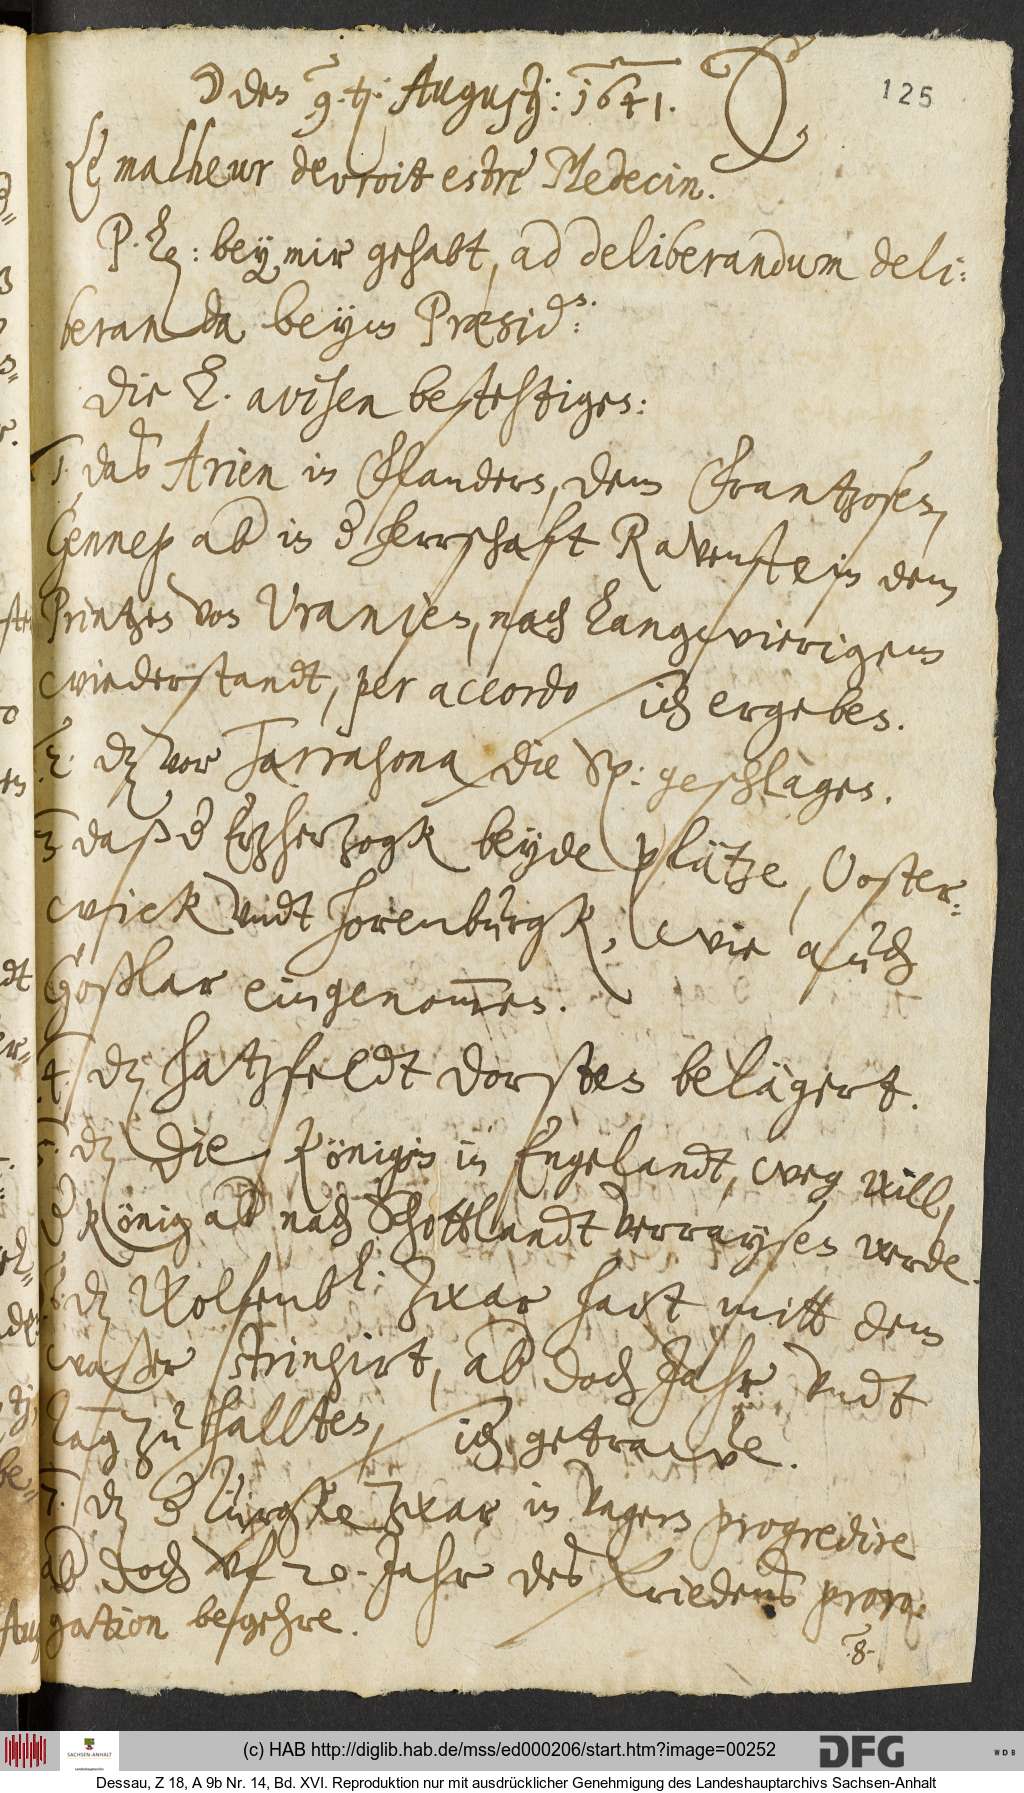 125
☽ den 9. t: Augustj: 1641.
Le malheur devroit estre Medecin.
P. L: bey mir gehabt, ad deliberandum deli:
beranda beym Præsid:
Die L. avisen bestehtigen:
1. daß Arien in Flandern, dem Frantzosen,
Gennep ab in d herrschaft Ravenstein dem
Printzen von Uranien, nach Langwierigem
wiederstandt, per accordo sich ergeben.
2. dz vor Tarrasona die Sp: geschlagen.
3 daß d Ertzhertzogk beyde plätze, Ooster-
wiek vndt Horenburgk, wie auch
Goßlar eingenommen.
4. dz Hatzfeldt Dorsten belägert.
5. dz die Königin in Engelandt, weg will,
d König ab nach Schottlandt verraysen werde.
6. dz Wolfenb: zwar hart mitt dem
waßer stringirt, ab doch Jahr vndt
Tag zu halten, sich getrawe.
7. dz d Türgke zwar in Vngern progredire
ab doch vf 20. Jahr des friedens prora:
gation begehre.
8.
(c) HAB http://diglib.hab.de/mss/ed000206/start.htm?image=00252
SACHSEN-ANHALT
DFG
WDB
Dessau, Z 18, A 9b Nr. 14, Bd. XVI. Reproduktion nur mit ausdrücklicher Genehmigung des Landeshauptarchivs Sachsen-Anhalt